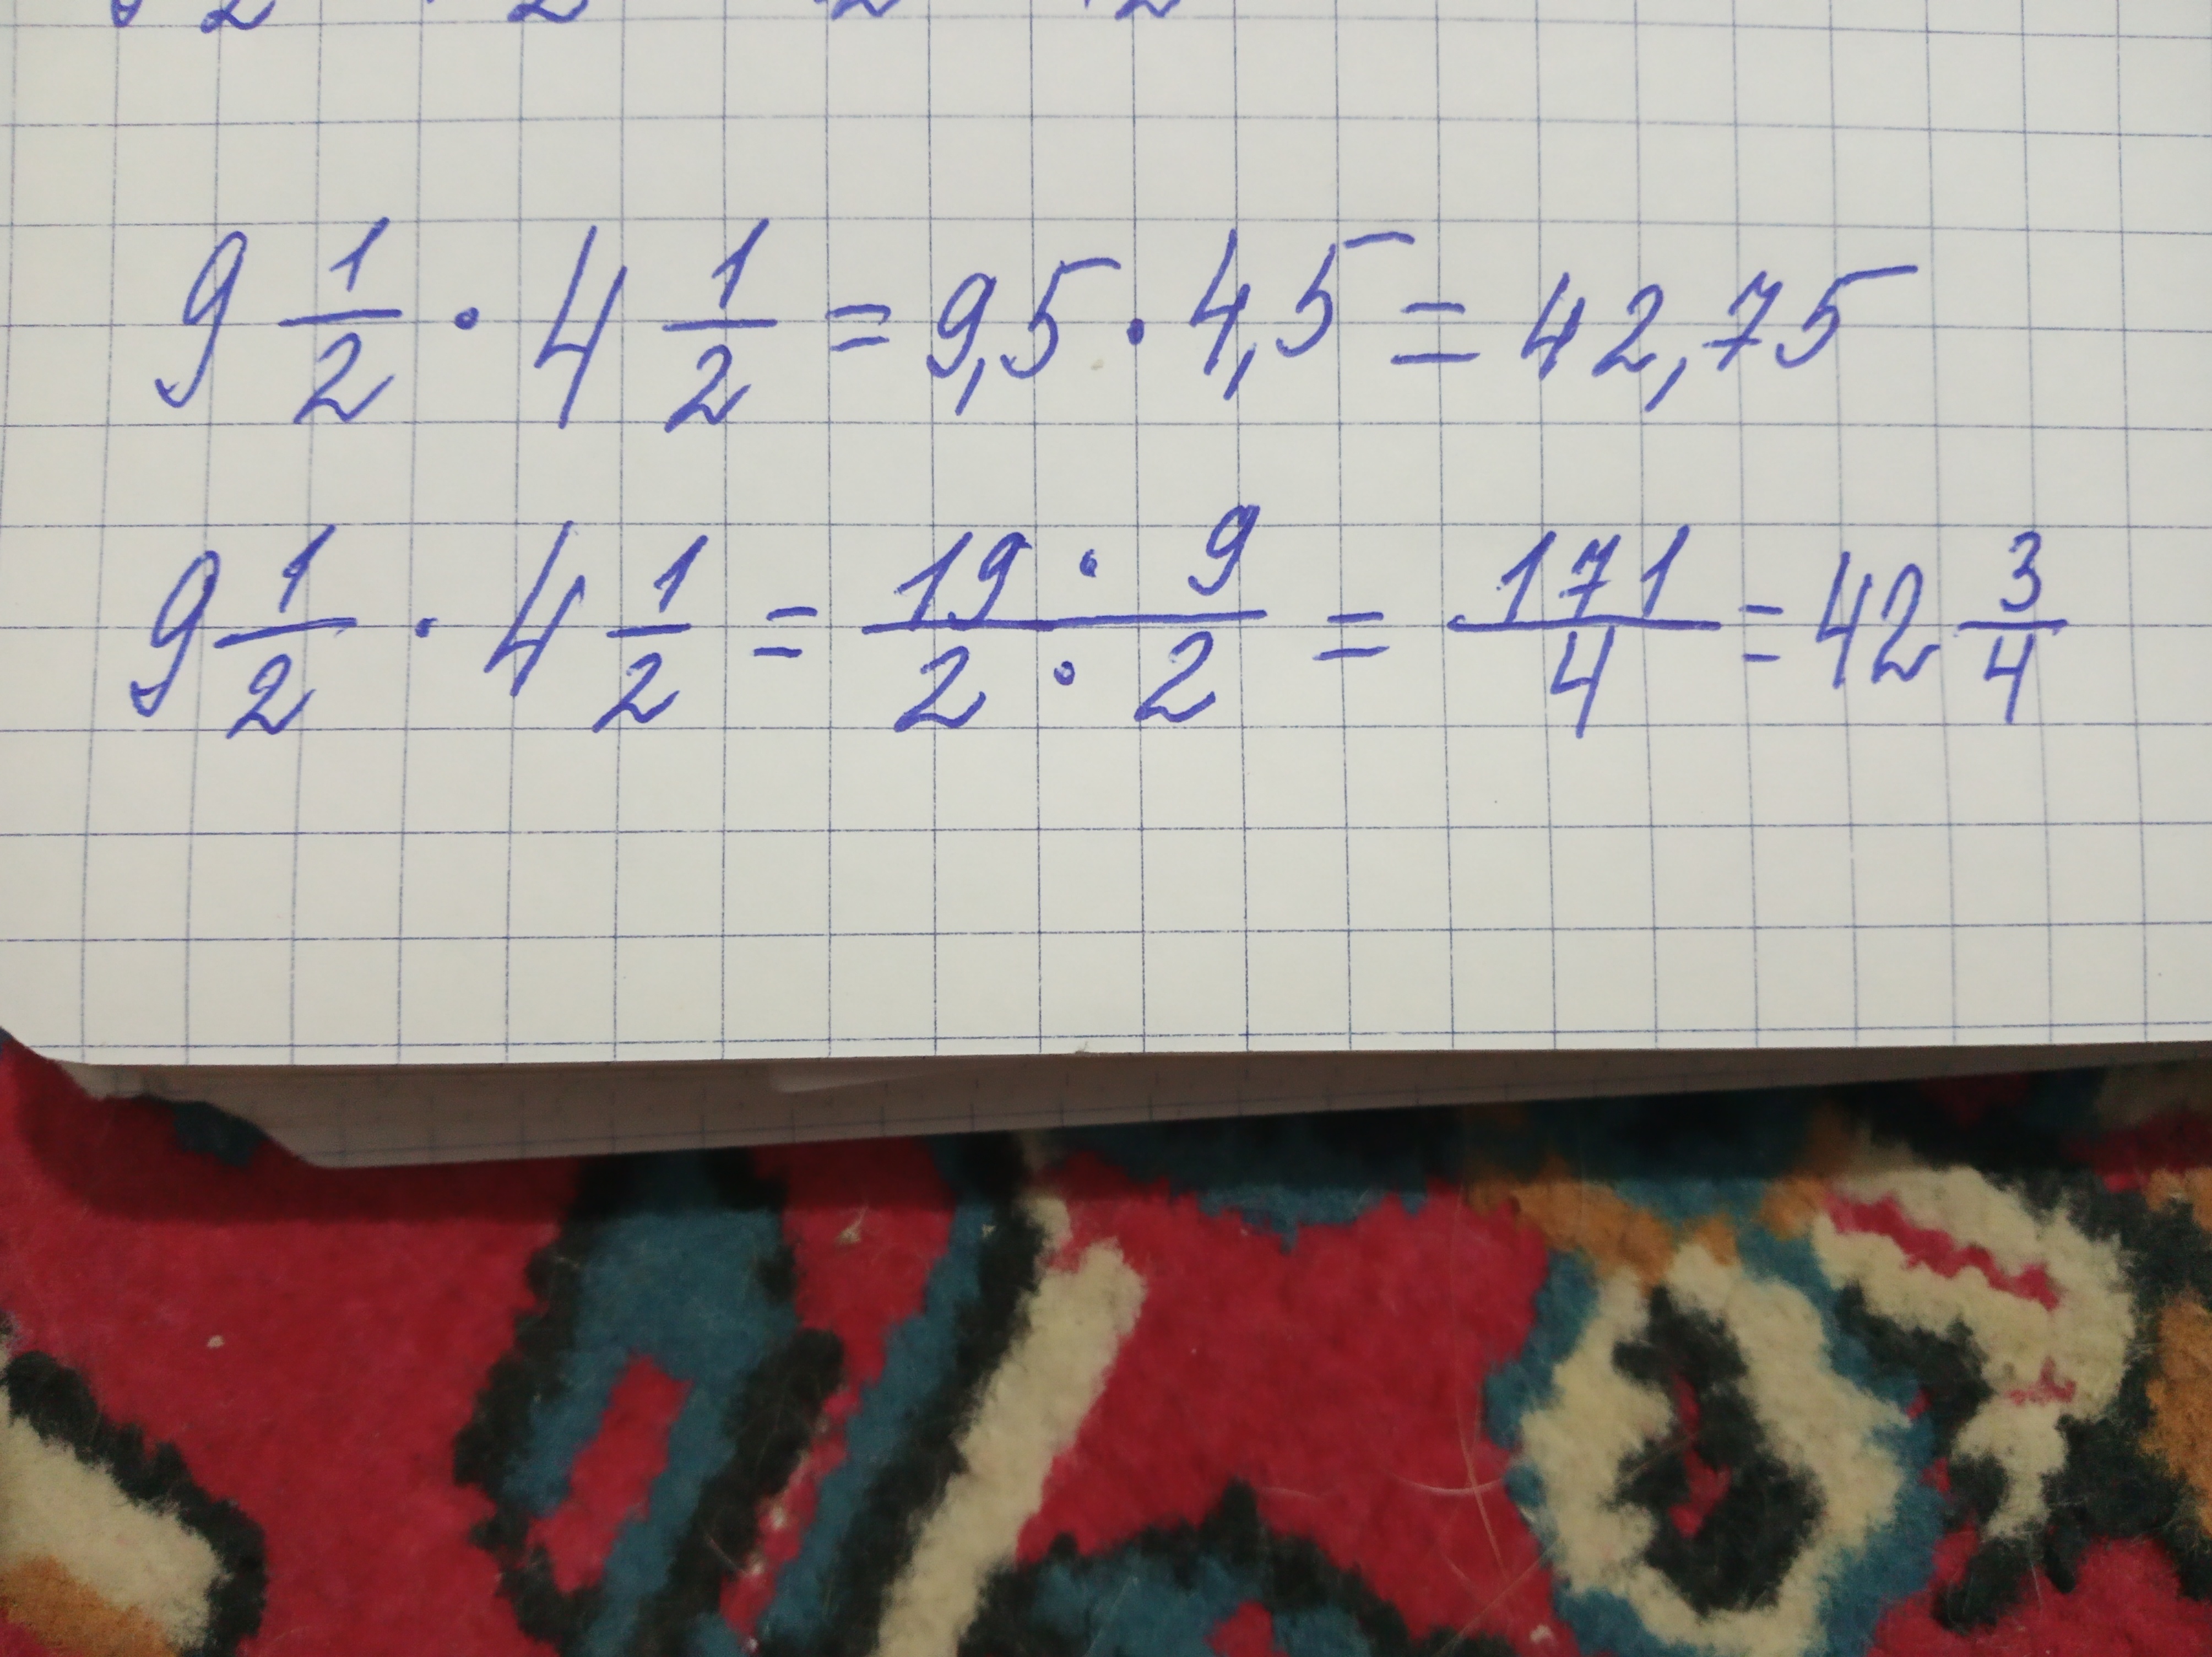 9 1/2 · 4 1/2 = 9,5 · 4,5 = 42,75
9 1/2 · 4 1/2 = (19 · 9)/(2 · 2) = 171/4 = 42 3/4